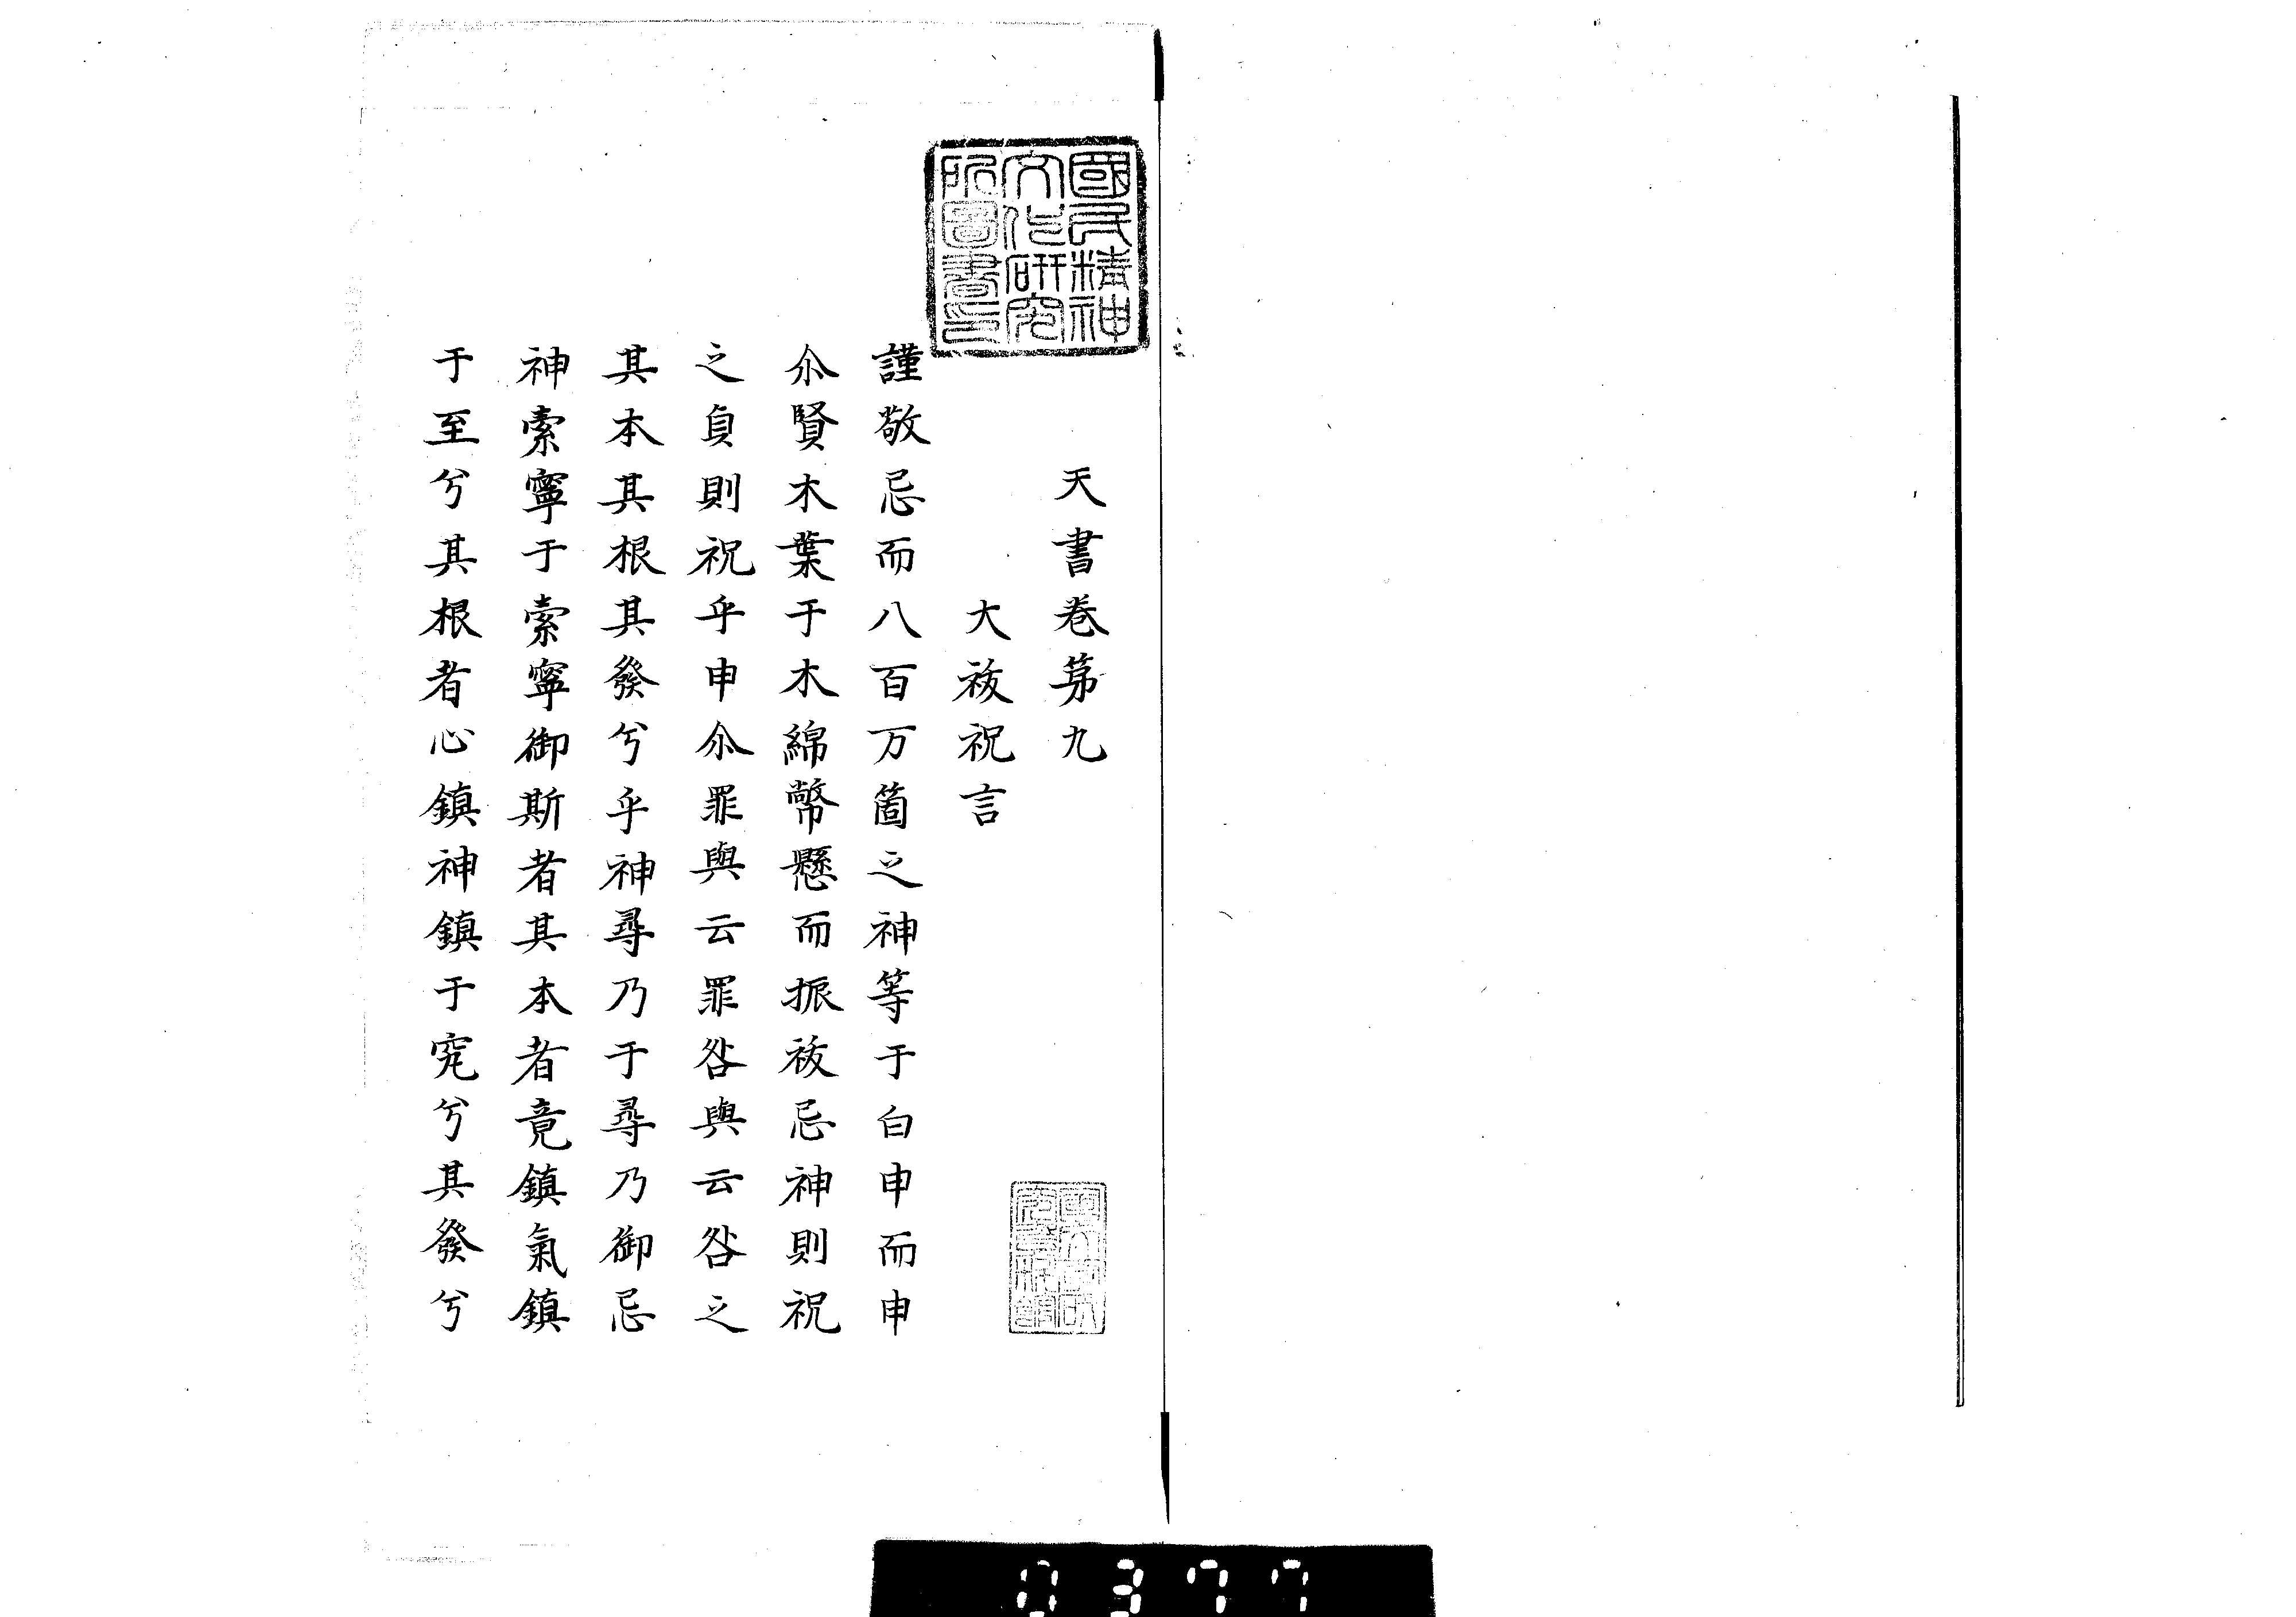 國民精神
文化研究
所圖書印
天書卷第九
大祓祝言
謹敬忌而八百万箇之神等于白申而申
尒賢木葉于木綿幣懸而振祓忌神則祝
之負則祝乎申尒罪與云罪咎與云咎之
其本其根其發兮乎神尋乃于尋乃御忌
神索寧于索寧御斯者其本者竟鎮氣鎮
于至兮其根者心鎮神鎮于究兮其發兮
0377